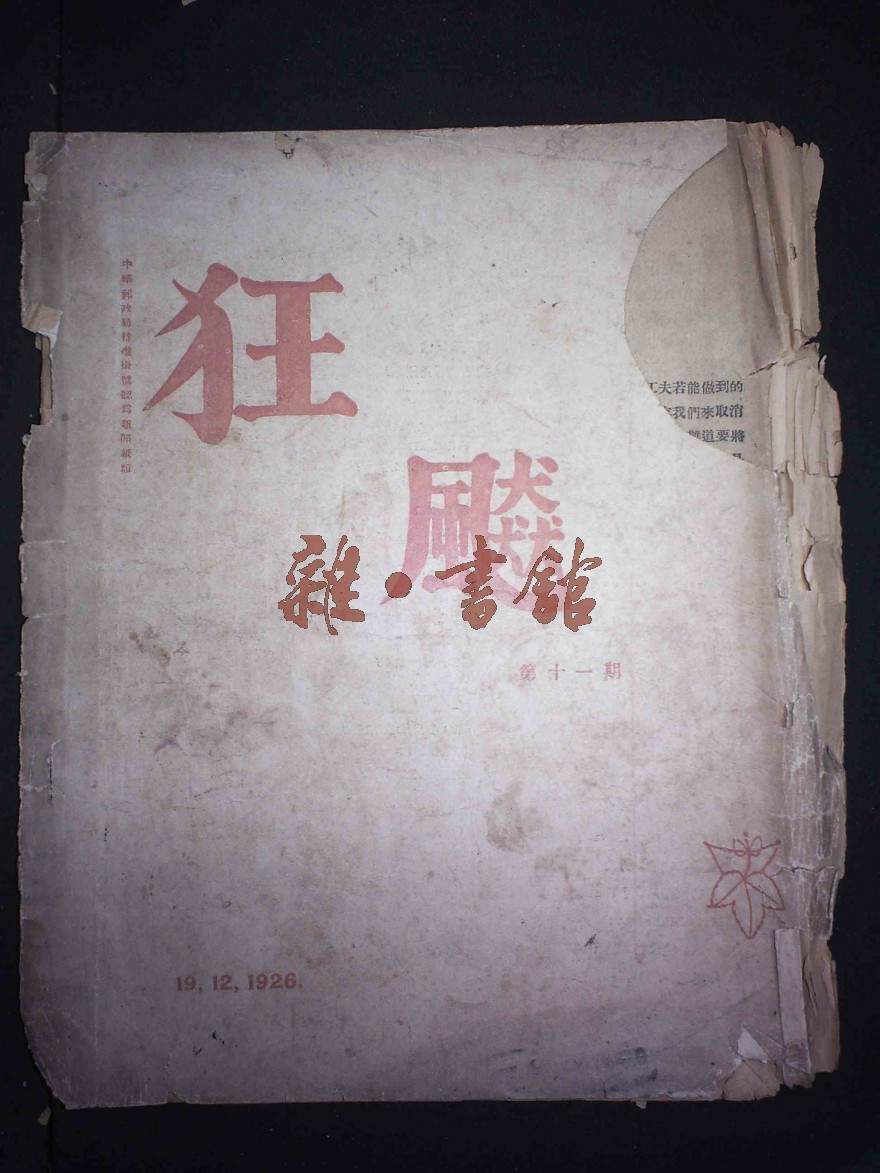 中華郵政局特准掛號認爲新聞紙類
狂
飇
雜•書館
第十一期
工夫若能做到的
我們來取消
難道要將
19, 12, 1926.